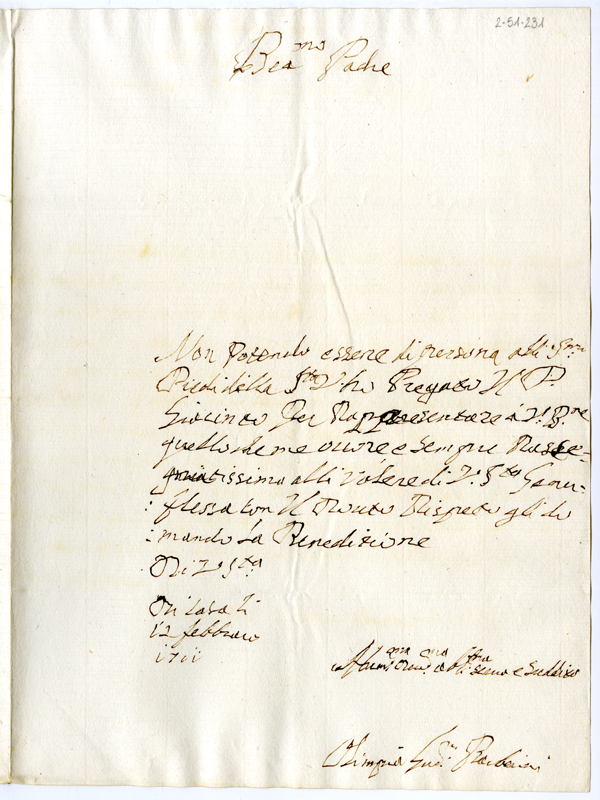 2-51-231
Bea.mo Padre
Non Potendo essere di persona alli S.mi
Piedi della S.tà V. hò Pregato Il P.
Giacinto Per Rappresentare à V. B.ne
quello che me occore e sempre Rasse-
gnatissima alli Voleredi V. S.tà Genu-
flessa con Il Dovuto Rispeto gli do
mando La Benedizione
Di V. S.tà
Di Casa li
12 febbraro
1711
Hum.ma e Suddita
Olimpia Barberini